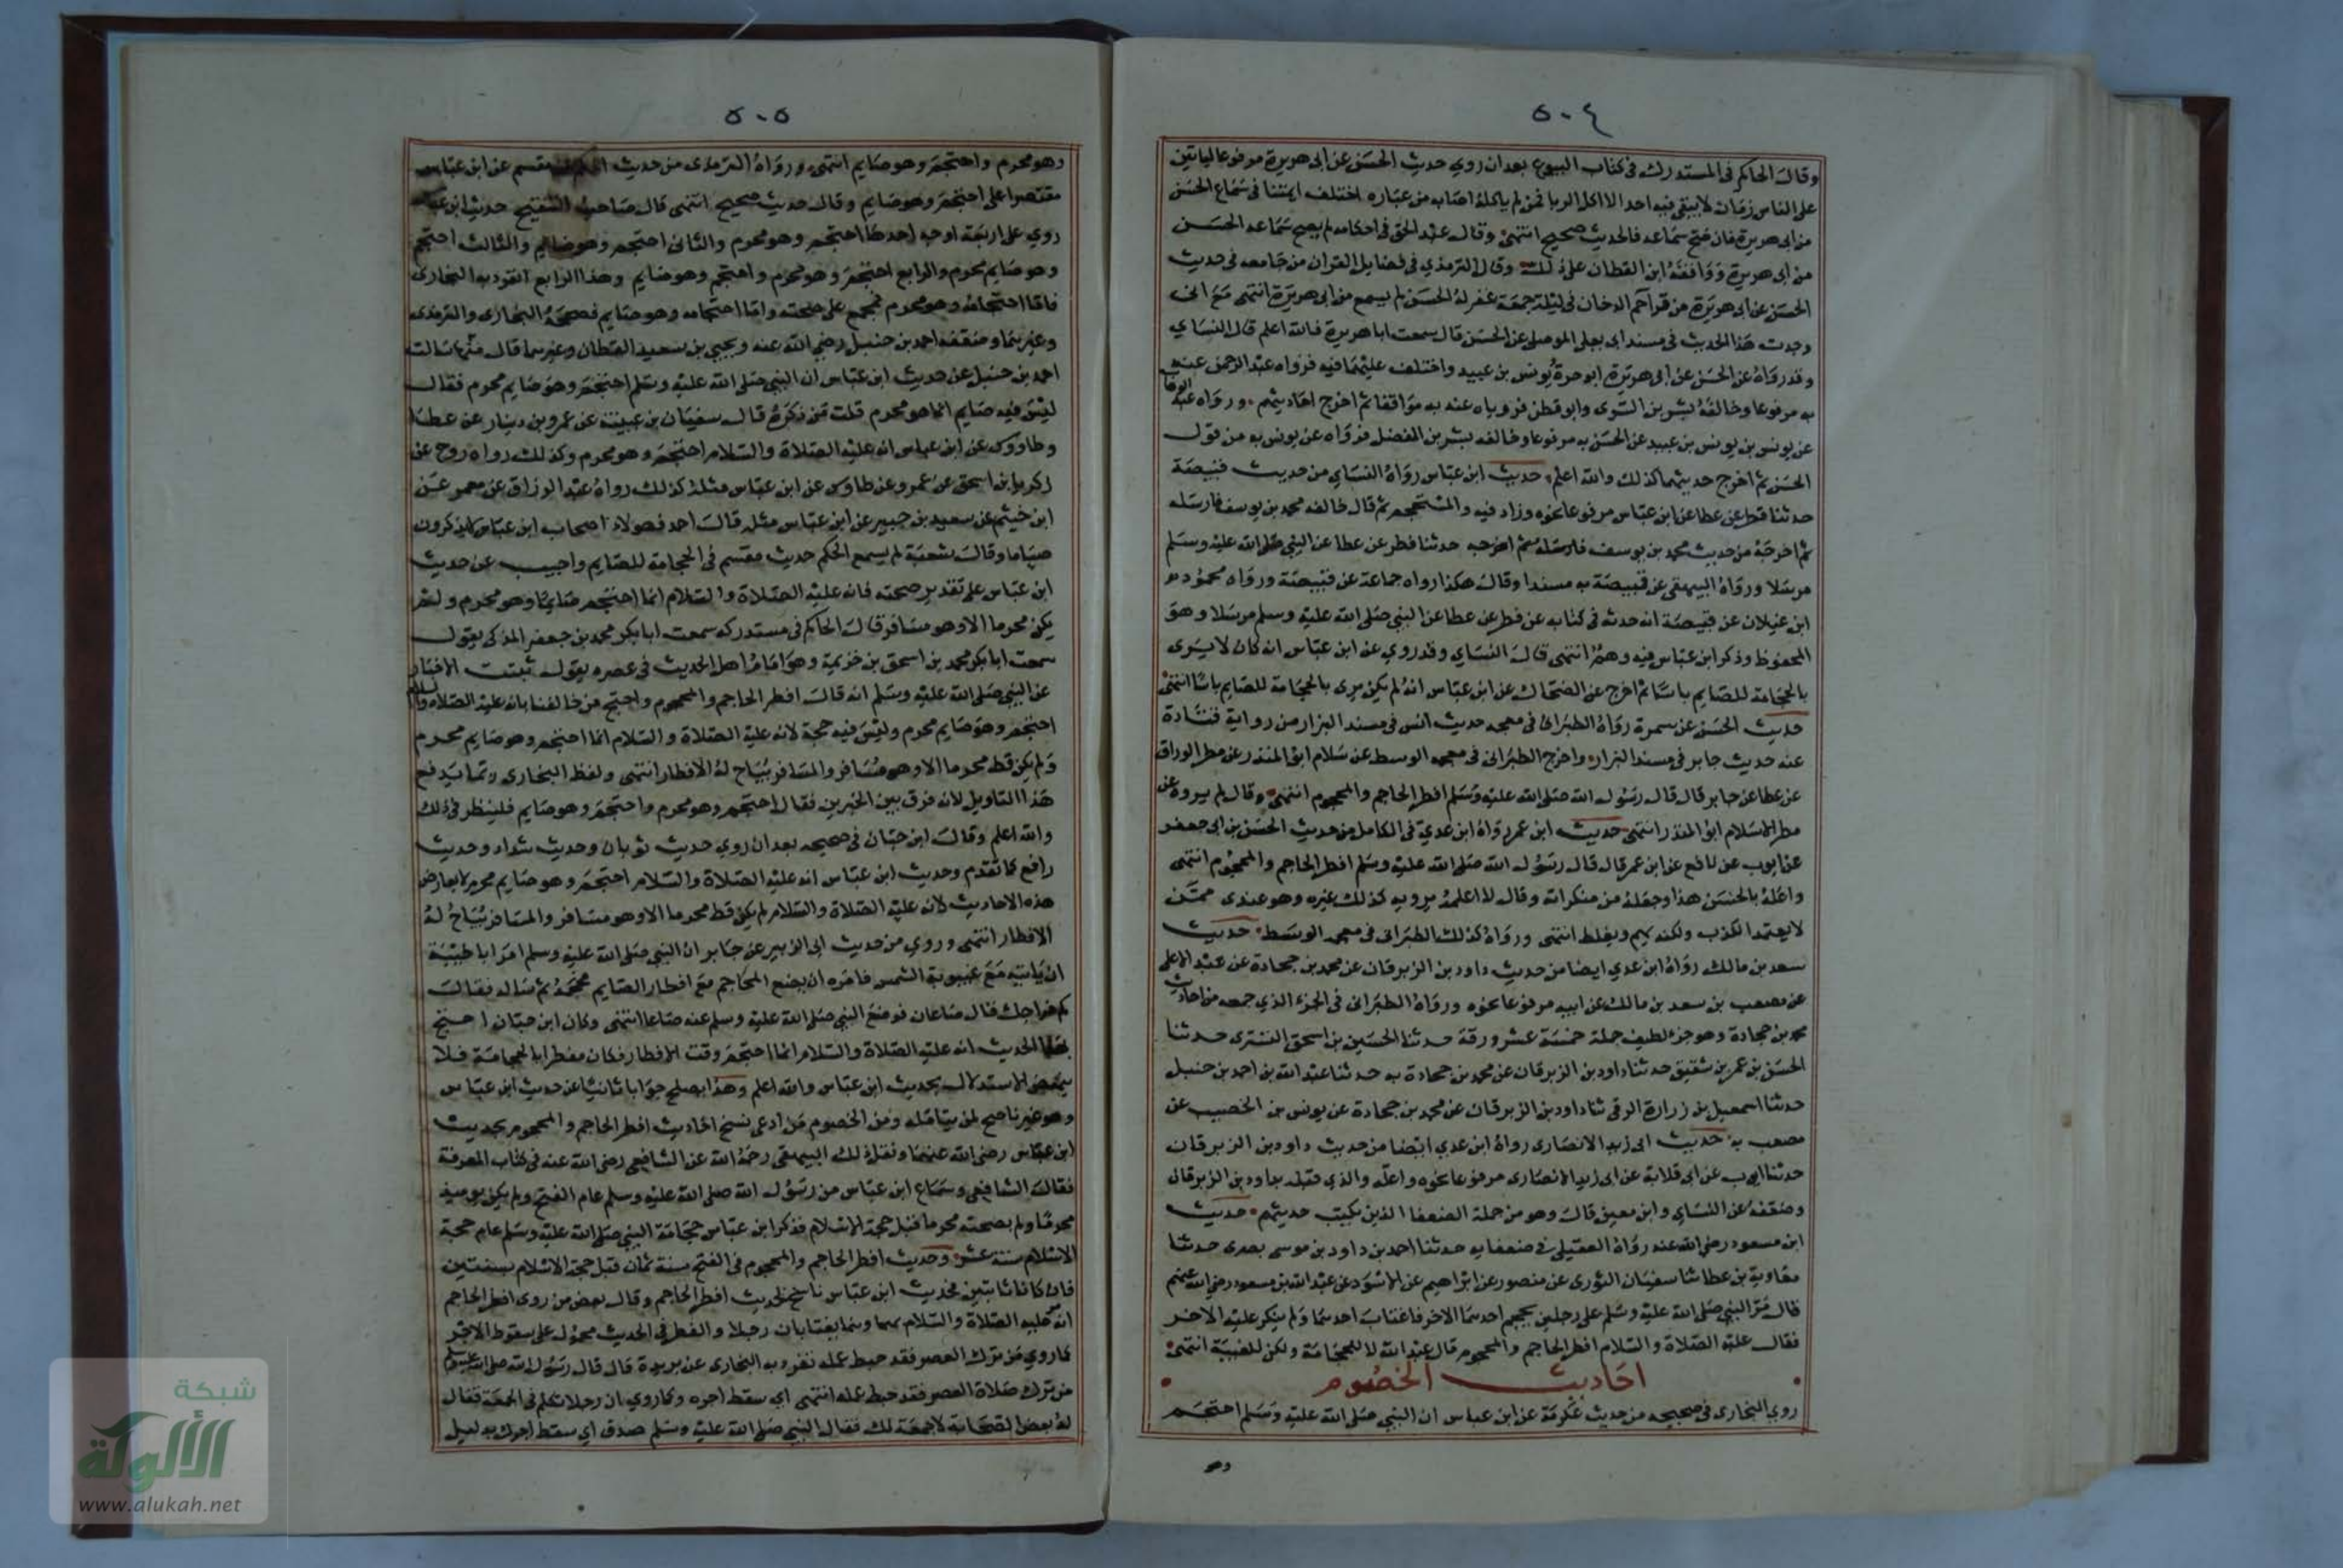 ٥٠٤
وقال الحاكم في المستدرك في كتاب البيوع بعد ان روي حديث الحسن عن ابي هريرة مرفوعا لياتين
على الناس زمان لا يبقي فيه احد الا اكل الربا فمن لم ياكله اصابه من غباره اختلف ايمتنا في سماع الحسن
من ابي هريرة فان صح سماعه فالحديث صحيح انتهى وقال عبد الحق في احكامه لم يصح سماعه الحسن
من ابي هريرة ووافقه ابن القطان على ذلك وقال الترمذي في فضايل القران من جامعه في حديث
الحسن عن ابي هريرة من قرا حم الدخان في ليلة جمعة غفر له الحسن لم يسمع من ابي هريرة انتهى مع اني
وجدت هذا الحديث في مسند ابي يعلى الموصلي عن الحسن قال سمعت ابا هريرة فالله اعلم قال النساي
وقد رواه عن الحسن عن ابي هريرة ابو حرة يونس بن عبيد واختلف عليهما فيه فرواه عبد الرحمن عنه
به مرفوعا وخالفه بشر بن السري وابو قطن فروياه عنه به موافقا ثم اخرج احاديثهم ورواه عبد الوهاب
عن يونس بن يونس بن عبيد عن الحسن به مرفوعا وخالفه بشر بن الفضل فرواه عن يونس به من قول
الحسن ثم اخرج حديثهما كذلك والله اعلم حديث ابن عباس رواه النساي من حديث قبيصة
حدثنا فطر عن عطا عن ابن عباس مرفوعا نحوه وزاد فيه والمستحجم ثم قال خالفه محمد بن يوسف فارسله
ثم اخرجه من حديث محمد بن يوسف فارسله ثم اخرجه حدثنا فطر عن عطا عن النبي صلى الله عليه وسلم
مرسلا ورواه البيهقي عن قبيصة به مسندا وقال هكذا رواه جماعة عن قبيصة ورواه محمود
ابن غيلان عن قبيصة انه حدثه في كتابه عن فطر عن عطا عن النبي صلى الله عليه وسلم مرسلا وهو
المحفوظ وذكر ابن عباس فيه وهم انتهى قال النساي وقد روي عن ابن عباس انه كان لا يرى
بالحجامة للصايم باسا ثم اخرج عن الضحاك عن ابن عباس انه لم يكن يرى بالحجامة للصايم باسا انتهى
حديث الحسن عن سمرة رواه الطبراني في معجمه حديث انس في مسند البزار من رواية قتادة
عنه حديث جابر في مسند البزار واخرج الطبراني في معجمه الوسط عن سلام ابو المنذر عن مطر الوراق
عن عطا عن جابر قال قال رسول الله صلى الله عليه وسلم افطر الحاجم والمحجوم انتهى وقال لم يروه عن
مطر الا سلام ابو المنذر انتهى حديث ابن عمر رواه ابن عدي في الكامل من حديث الحسن بن ابي جعفر
عن ايوب عن نافع عن ابن عمر قال قال رسول الله صلى الله عليه وسلم افطر الحاجم والمحجوم انتهى
واعله بالحسن هذا وجعله من منكراته وقال لا اعلمه يرويه كذلك غيره وهو عندي ممن
لا يعتمد الكذب ولكنه يهم ويغلط انتهى ورواه كذلك الطبراني في معجمه الوسط حديث
سعد بن مالك رواه ابن عدي ايضا من حديث داود بن الزبرقان عن محمد بن جحادة عن عبد الاعلى
عن مصعب بن سعد بن مالك عن ابيه مرفوعا نحوه ورواه الطبراني في الجزء الذي جمعه من احاديث
محمد بن جحادة وهو جزء لطيف جملة خمسة عشر ورقة حدثنا الحسين بن اسحق التستري حدثنا
الحسن بن عمر بن شقيق حدثنا داود بن الزبرقان عن محمد بن جحادة به حدثنا عبد الله بن احمد بن حنبل
حدثنا اسمعيل بن زرارة الرقي ثنا داود بن الزبرقان عن محمد بن جحادة عن يونس بن الخصيب عن
مصعب به حديث ابي زيد الانصاري رواه ابن عدي ايضا من حديث داود بن الزبرقان
حدثنا ايوب عن ابي قلابة عن ابي زيد الانصاري مرفوعا نحوه واعله والذي قبله بداود بن الزبرقان
وضعفه عن النساي وابن معين قال وهو من جملة الضعفا الذين يكتب حديثهم حديث
ابن مسعود رضي الله عنه رواه العقيلي في ضعفايه حدثنا احمد بن داود بن موسى بصري حدثنا
معاوية بن عطا ثنا سفيان الثوري عن منصور عن ابراهيم عن الاسود عن عبد الله بن مسعود رضي الله عنهم
قال مر النبي صلى الله عليه وسلم على رجلين يحجم احدهما الاخر فاغتاب احدهما ولم ينكر عليه الاخر
فقال عليه الصلاة والسلام افطر الحاجم والمحجوم قال عبد الله لا للحجامة ولكن للغيبة انتهى
احاديث الخصوم
روي البخاري في صحيحه من حديث عكرمة عن ابن عباس ان النبي صلى الله عليه وسلم احتجم
وهو
٥٠٥
وهو محرم واحتجم وهو صايم انتهى ورواه الترمذي من حديث مقسم عن ابن عباس
مقتصرا على احتجم وهو صايم وقال حديث صحيح انتهى قال صاحب التنقيح حديث ابن عباس
روي على اربعة اوجه احدها احتجم وهو محرم والثاني احتجم وهو صايم والثالث احتجم
وهو صايم محرم والرابع احتجم وهو محرم واحتجم وهو صايم وهذا الرابع انفرد به البخاري
فاما احتجامه وهو محرم فمجمع على صحته واما احتجامه وهو صايم فصححه البخاري والترمذي
وغيرهما وضعفه احمد بن حنبل رضي الله عنه ويحيى بن سعيد القطان وغيرهما قال مهنا سالت
احمد بن حنبل عن حديث ابن عباس ان النبي صلى الله عليه وسلم احتجم وهو صايم محرم فقال
ليس فيه صايم انما هو محرم قلت من ذكره قال سفيان بن عيينة عن عمرو بن دينار عن عطا
وطاووس عن ابن عباس انه عليه الصلاة والسلام احتجم وهو محرم وكذلك رواه روح عن
زكريا بن اسحق عن عمرو عن طاوس عن ابن عباس مثله كذلك رواه عبد الرزاق عن معمر عن
ابن خيثم عن سعيد بن جبير عن ابن عباس مثله قال احمد فهولاء اصحاب ابن عباس لا يذكرون
صياما وقال شعبة لم يسمع الحكم حديث مقسم في الحجامة للصايم واجيب عن حديث
ابن عباس على تقدير صحته فانه عليه الصلاة والسلام انما احتجم صايما وهو محرم ولم
يكن محرما الا وهو مسافر قال الحاكم في مستدركه سمعت ابا بكر محمد بن جعفر المذكي يقول
سمعت ابا بكر محمد بن اسحق بن خزيمة وهو امام اهل الحديث في عصره يقول ثبتت الاخبار
عن النبي صلى الله عليه وسلم انه قال افطر الحاجم والمحجوم واحتج من خالفنا بانه عليه الصلاة والسلام
احتجم وهو صايم محرم وليس فيه حجة لانه عليه الصلاة والسلام انما احتجم وهو صايم محرم
ولم يكن قط محرما الا وهو مسافر والمسافر يباح له الافطار انتهى ولفظ البخاري ربما يدفع
هذا التاويل لانه فرق بين الخبرين فقال احتجم وهو محرم واحتجم وهو صايم فلينظر في ذلك
والله اعلم وقال ابن حبان في صحيحه بعد ان روي حديث ثوبان وحديث شداد وحديث
رافع كما تقدم وحديث ابن عباس انه عليه الصلاة والسلام احتجم وهو صايم محرم لا يعارض
هذه الاحاديث لانه عليه الصلاة والسلام لم يكن قط محرما الا وهو مسافر والمسافر يباح له
الافطار انتهى وروي من حديث ابي الزبير عن جابر ان النبي صلى الله عليه وسلم امر ابا طيبة
ان ياتيه مع غيبوبة الشمس فامره ان يضع المحاجم مع افطار الصايم فحجمه ثم ساله فقال
كم خراجك قال صاعان فوضع النبي صلى الله عليه وسلم عنه صاعا انتهى وكان ابن حبان احتج
بهذا الحديث انه عليه الصلاة والسلام انما احتجم وقت الافطار فكان مفطرا بالحجامة فلا
ينهض الاستدلال بحديث ابن عباس والله اعلم وهذا يصلح جوابا ثانيا عن حديث ابن عباس
وهو غير ناصح لمن يتامله ومن الخصوم من ادعى نسخ احاديث افطر الحاجم والمحجوم بحديث
ابن عباس رضي الله عنهما ونقل ذلك البيهقي رحمه الله عن الشافعي رضي الله عنه في كتاب المعرفة
فقال الشافعي وسماع ابن عباس من رسول الله صلى الله عليه وسلم عام الفتح ولم يكن يوميذ
محرما ولم يصحبه محرما قبل حجة الاسلام فذكر ابن عباس حجامة النبي صلى الله عليه وسلم عام حجة
الاسلام سنة عشر وحديث افطر الحاجم والمحجوم في الفتح سنة ثمان قبل حجة الاسلام بسنتين
فان كانا ثابتين فحديث ابن عباس ناسخ لحديث افطر الحاجم وقال بعض من روى افطر الحاجم
انه عليه الصلاة والسلام بهما وهما يغتابان رجلا والفطر في الحديث محمول على سقوط الاجر
كما روي من ترك العصر فقد حبط عمله تفرد به البخاري عن بريدة قال قال رسول الله صلى الله عليه وسلم
من ترك صلاة العصر فقد حبط عمله انتهى اي سقط اجره وكما روي ان رجلا تكلم في الجمعة فقال
له بعض الصحابة لا جمعة لك فقال النبي صلى الله عليه وسلم صدق اي سقط اجرك بدليل
شبكة
الألوكة
www.alukah.net